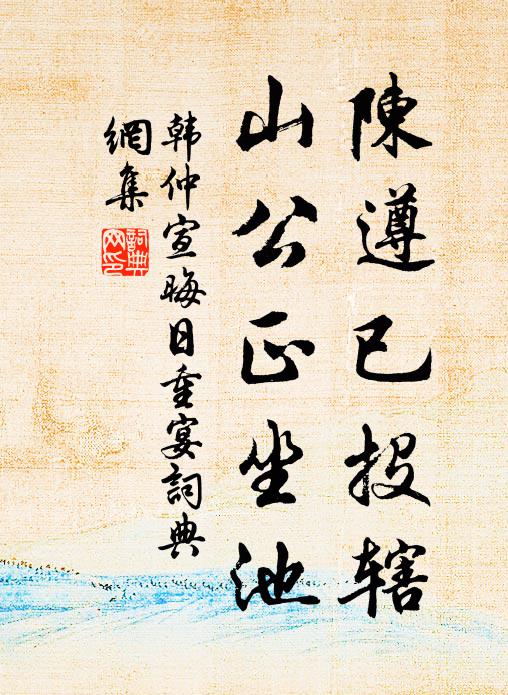 陳遵已投辖
山公正坐池
韩仲宣晦日重宴詞典
網集
詞典网印